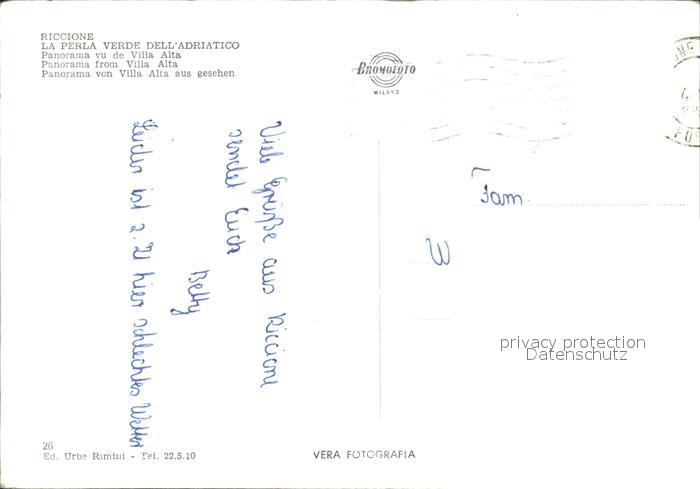 RICCIONE
LA PERLA VERDE DELL'ADRIATICO
Panorama vu de Villa Alta
Panorama from Villa Alta
Panorama von Villa Alta aus gesehen
BROMOFOTO
MILANO
Viele Grüße aus Riccione
sendet Euch
Betty
Leider ist z. Zt hier schlechtes Wetter
Fam.
privacy protection
Datenschutz
26
Ed. Urbe Rimini - Tel. 22.5.10
VERA FOTOGRAFIA